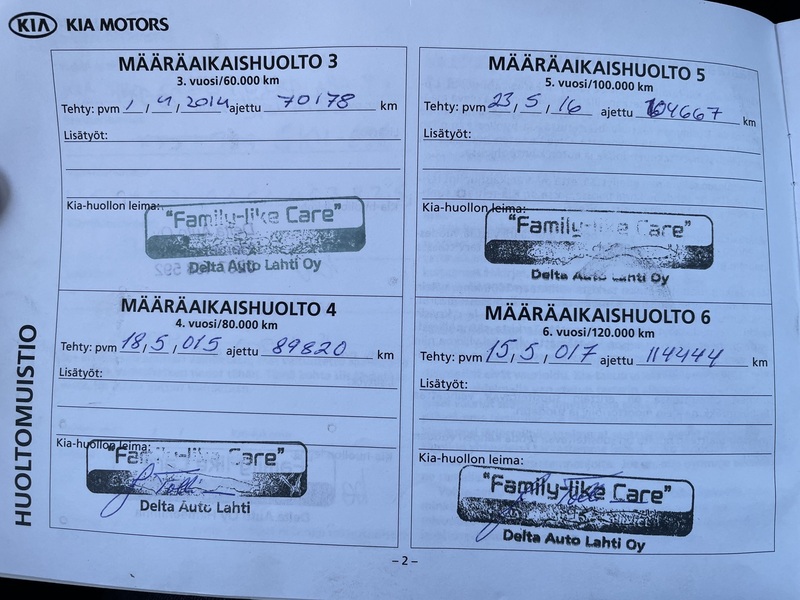 KIA KIA MOTORS
MÄÄRÄAIKAISHUOLTO 3
3. vuosi/60.000 km
Tehty: pvm 1 , 4 , 2014 ajettu 70178 km
Lisätyöt:
Kia-huollon leima:
"Family-like Care"
Delta Auto Lahti Oy
MÄÄRÄAIKAISHUOLTO 4
4. vuosi/80.000 km
Tehty: pvm 18 , 5 , 015 ajettu 89820 km
Lisätyöt:
Kia-huollon leima:
"Family-like Care"
Delta Auto Lahti
MÄÄRÄAIKAISHUOLTO 5
5. vuosi/100.000 km
Tehty: pvm 23 , 5 , 16 ajettu 104667 km
Lisätyöt:
Kia-huollon leima:
"Family-like Care"
Delta Auto Lahti Oy
MÄÄRÄAIKAISHUOLTO 6
6. vuosi/120.000 km
Tehty: pvm 15 , 5 , 017 ajettu 114444 km
Lisätyöt:
Kia-huollon leima:
"Family-like Care"
Delta Auto Lahti Oy
HUOLTOMUISTIO
– 2 –